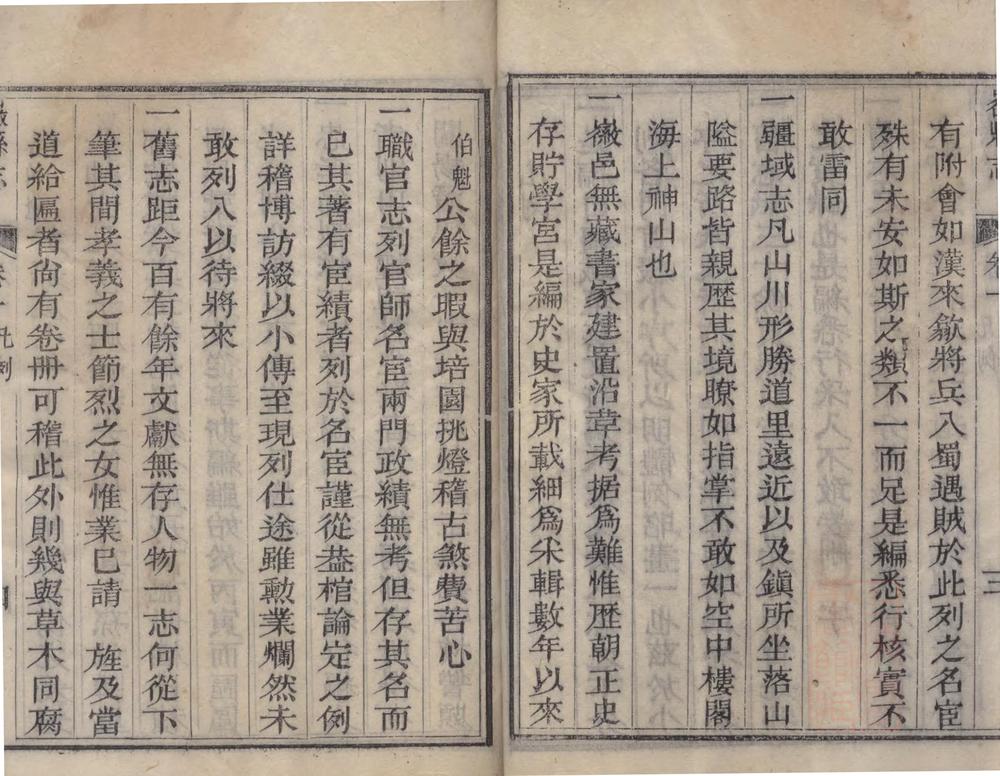 有附會如漢來歙將兵入蜀遇賊於此列之名宦
殊有未安如斯之類不一而足是編悉行核實不
敢雷同
一疆域志凡山川形勝道里遠近以及鎮所坐落山
隘要路皆親歷其境瞭如指掌不敢如空中樓閣
海上神山也
一徽邑無藏書家建置沿革考据爲難惟歷朝正史
存貯學宮是編於史家所載細爲采輯數年以來
伯魁公餘之暇與培園挑燈稽古煞費苦心
一職官志列官師名宦兩門政績無考但存其名而
已其著有宦績者列於名宦謹從葢棺論定之例
詳稽博訪綴以小傳至現列仕途雖勳業爛然未
敢列入以待將來
一舊志距今百有餘年文獻無存人物一志何從下
筆其間孝義之士節烈之女惟業已請 旌及當
道給匾者尙有卷冊可稽此外則幾與草木同腐